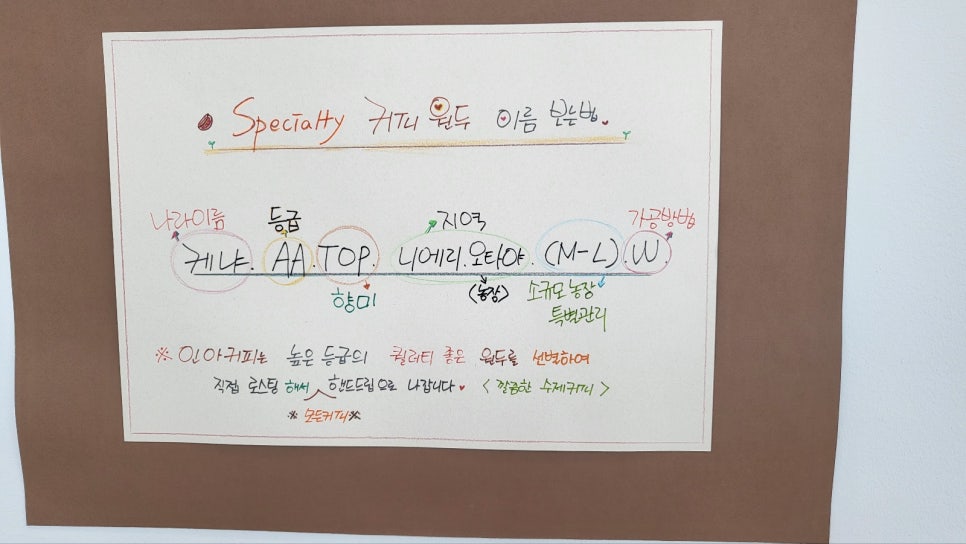 Specialty 커피 원두 이름 보는법
나라이름 등급 지역 가공방법
케냐. AA. TOP. 니에리.오타야. (M-L). W.
향미 (농장) 소규모 농장
특별관리
※ 인아커피는 높은 등급의 퀄러티 좋은 원두를 선별하여
직접 로스팅 해서 핸드드립으로 나갑니다 <깔끔한 수제커피>
※ 모든커피※